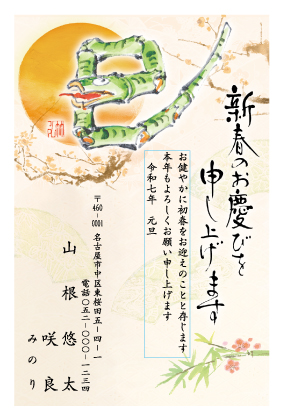 新春のお慶びを
申し上げます
お健やかに初春をお迎えのことと存じます
本年もよろしくお願い申し上げます
令和七年　元旦
〒460-0001 名古屋市中区東桜田五-四-一
電話〇五二-〇〇〇-一二三四
山根悠太
咲良
みのり